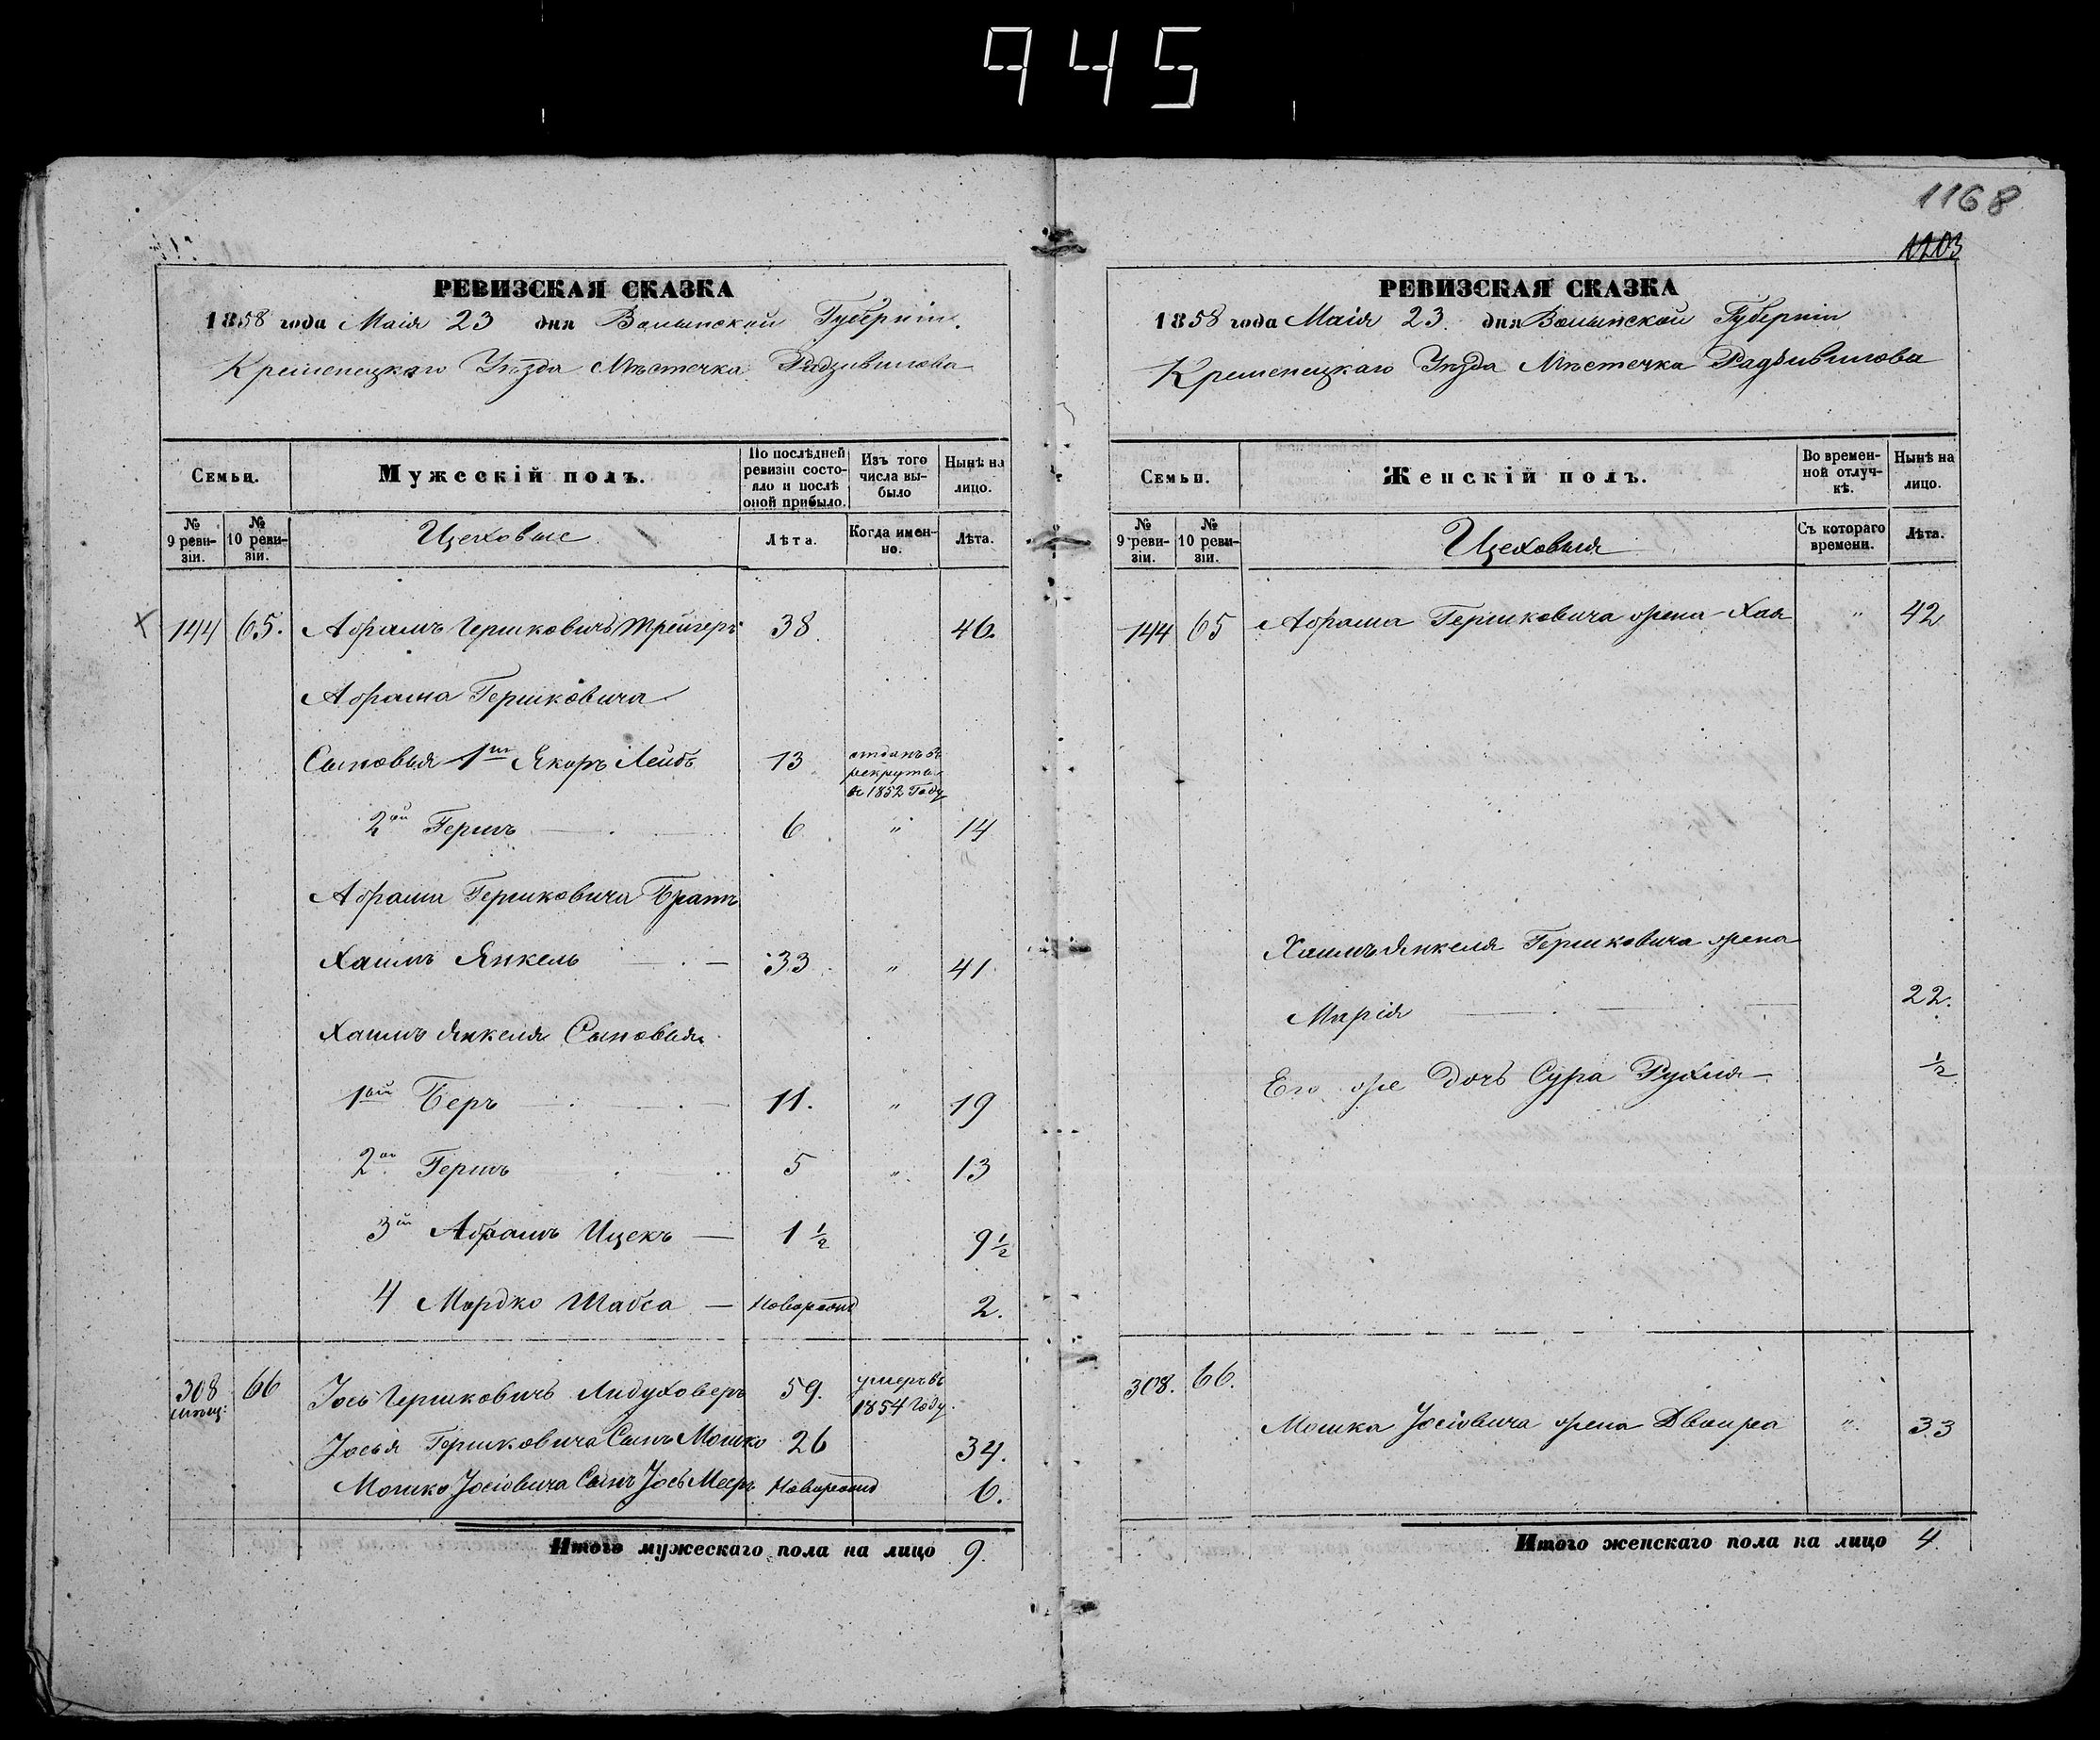 945
1168
1203
РЕВИЗСКАЯ СКАЗКА
1858 года Маія 23 дня Волынской Губерніи.
Кременецкаго Уѣзда Мѣстечка Радзивилова
Семьи.
Мужескій полъ.
По послѣдней ревизіи состояло и послѣ оной прибыло.
Изъ того числа выбыло
Нынѣ на лицо.
№ 9 ревизіи.
№ 10 ревизіи.
Цеховые
Лѣта.
Когда именно.
Лѣта.
144 65. Абрамъ Гершковичъ Трейгеръ 38. 46.
Абрама Гершковича
Сыновья 1й Лейбъ 13 отданъ въ рекруты въ 1852 Году
2ой Гершъ 6 " 14
Абрама Гершковича Братъ
Хаимъ Янкель 33 " 41
Хаимъ Янкеля Сыновья
1ый Беръ 11. " 19
2ой Гершъ 5 " 13
3й Абрамъ Ицекъ 1 1/2 9 1/2
4 Мордко Шабса Новорожд 2.
308 мѣщ: 66 Іось Гершковичъ Лидуховеръ 59. умеръ въ 1854 Году
Іося Гершковича Сынъ Мошко 26 34.
Мошко Іосіовича Сынъ Іось Мееръ Новорожд 6.
Итого мужескаго пола на лицо 9.
РЕВИЗСКАЯ СКАЗКА
1858 года Маія 23. дня Волынской Губерніи
Кременецкаго Уѣзда Мѣстечка Радзивилова
Семьи.
Женскій полъ.
Во временной отлучкѣ.
Нынѣ на лицо.
№ 9 ревизіи.
№ 10 ревизіи.
Цеховыя
Съ котораго времени.
Лѣта.
144 65 Абрама Гершковича жена Хая " 42
Хаимъ Янкеля Гершковича жена
Марія 22.
Его же дочь Сура Рухля 1/2
308. 66.
Мошка Іосіовича жена Двойра " 33
Итого женскаго пола на лицо 4.